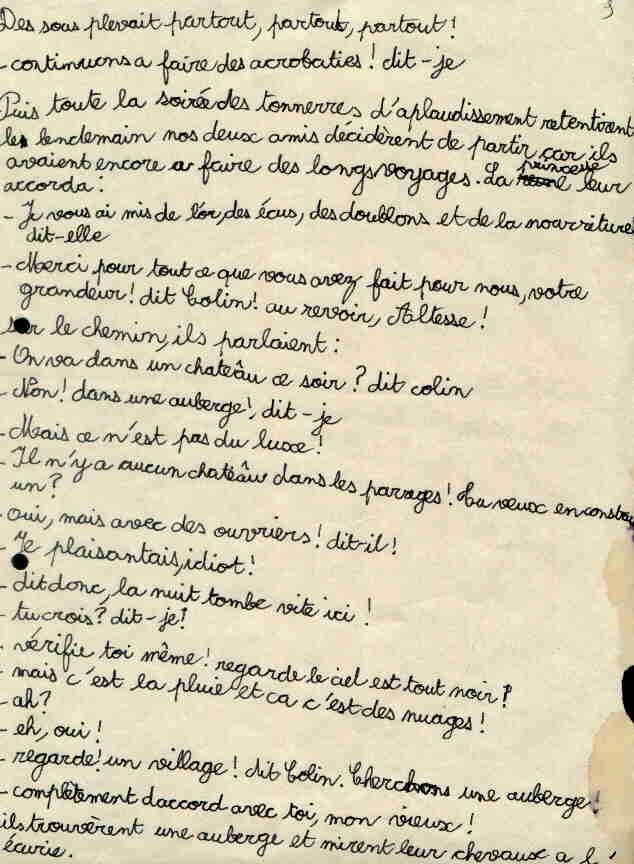 3
Des sous plevait partout, partout, partout!
- continuons a faire des acrobaties! dit-je
Puis toute la soirée des tonnerres d'aplaudissement retentirent
les lendemain nos deux amis décidèrent de partir car ils
avaient encore a faire des longs voyages. La princesse leur
accorda:
- Je vous ai mis de l'or, des écus, des doublons et de la nourriture
dit-elle
- Merci pour tout ce que vous avez fait pour nous, votre
grandeur! dit Colin! au revoir, Altesse!
sur le chemin, ils parlaient:
- On va dans un chateâu ce soir? dit colin
- Non! dans une auberge!, dit-je
- Mais ce n'est pas du luxe!
- Il n'y a aucun chateâu dans les parages! Tu veux en
un?
- oui, mais avec des ouvriers! dit-il!
- Je plaisantais, idiot!
- dit donc, la nuit tombe vite ici!
- tu crois? dit-je!
- vérifie toi même! regarde le ciel est tout noir!
- mais c'est la pluie et ca c'est des nuages!
- ah?
- eh, oui!
- regarde! un village! dit Colin. Cherchons une auberge!
- complètement daccord avec toi, mon vieux!
ils trouvèrent une auberge et mirent leur chevaux a l'
écurie.